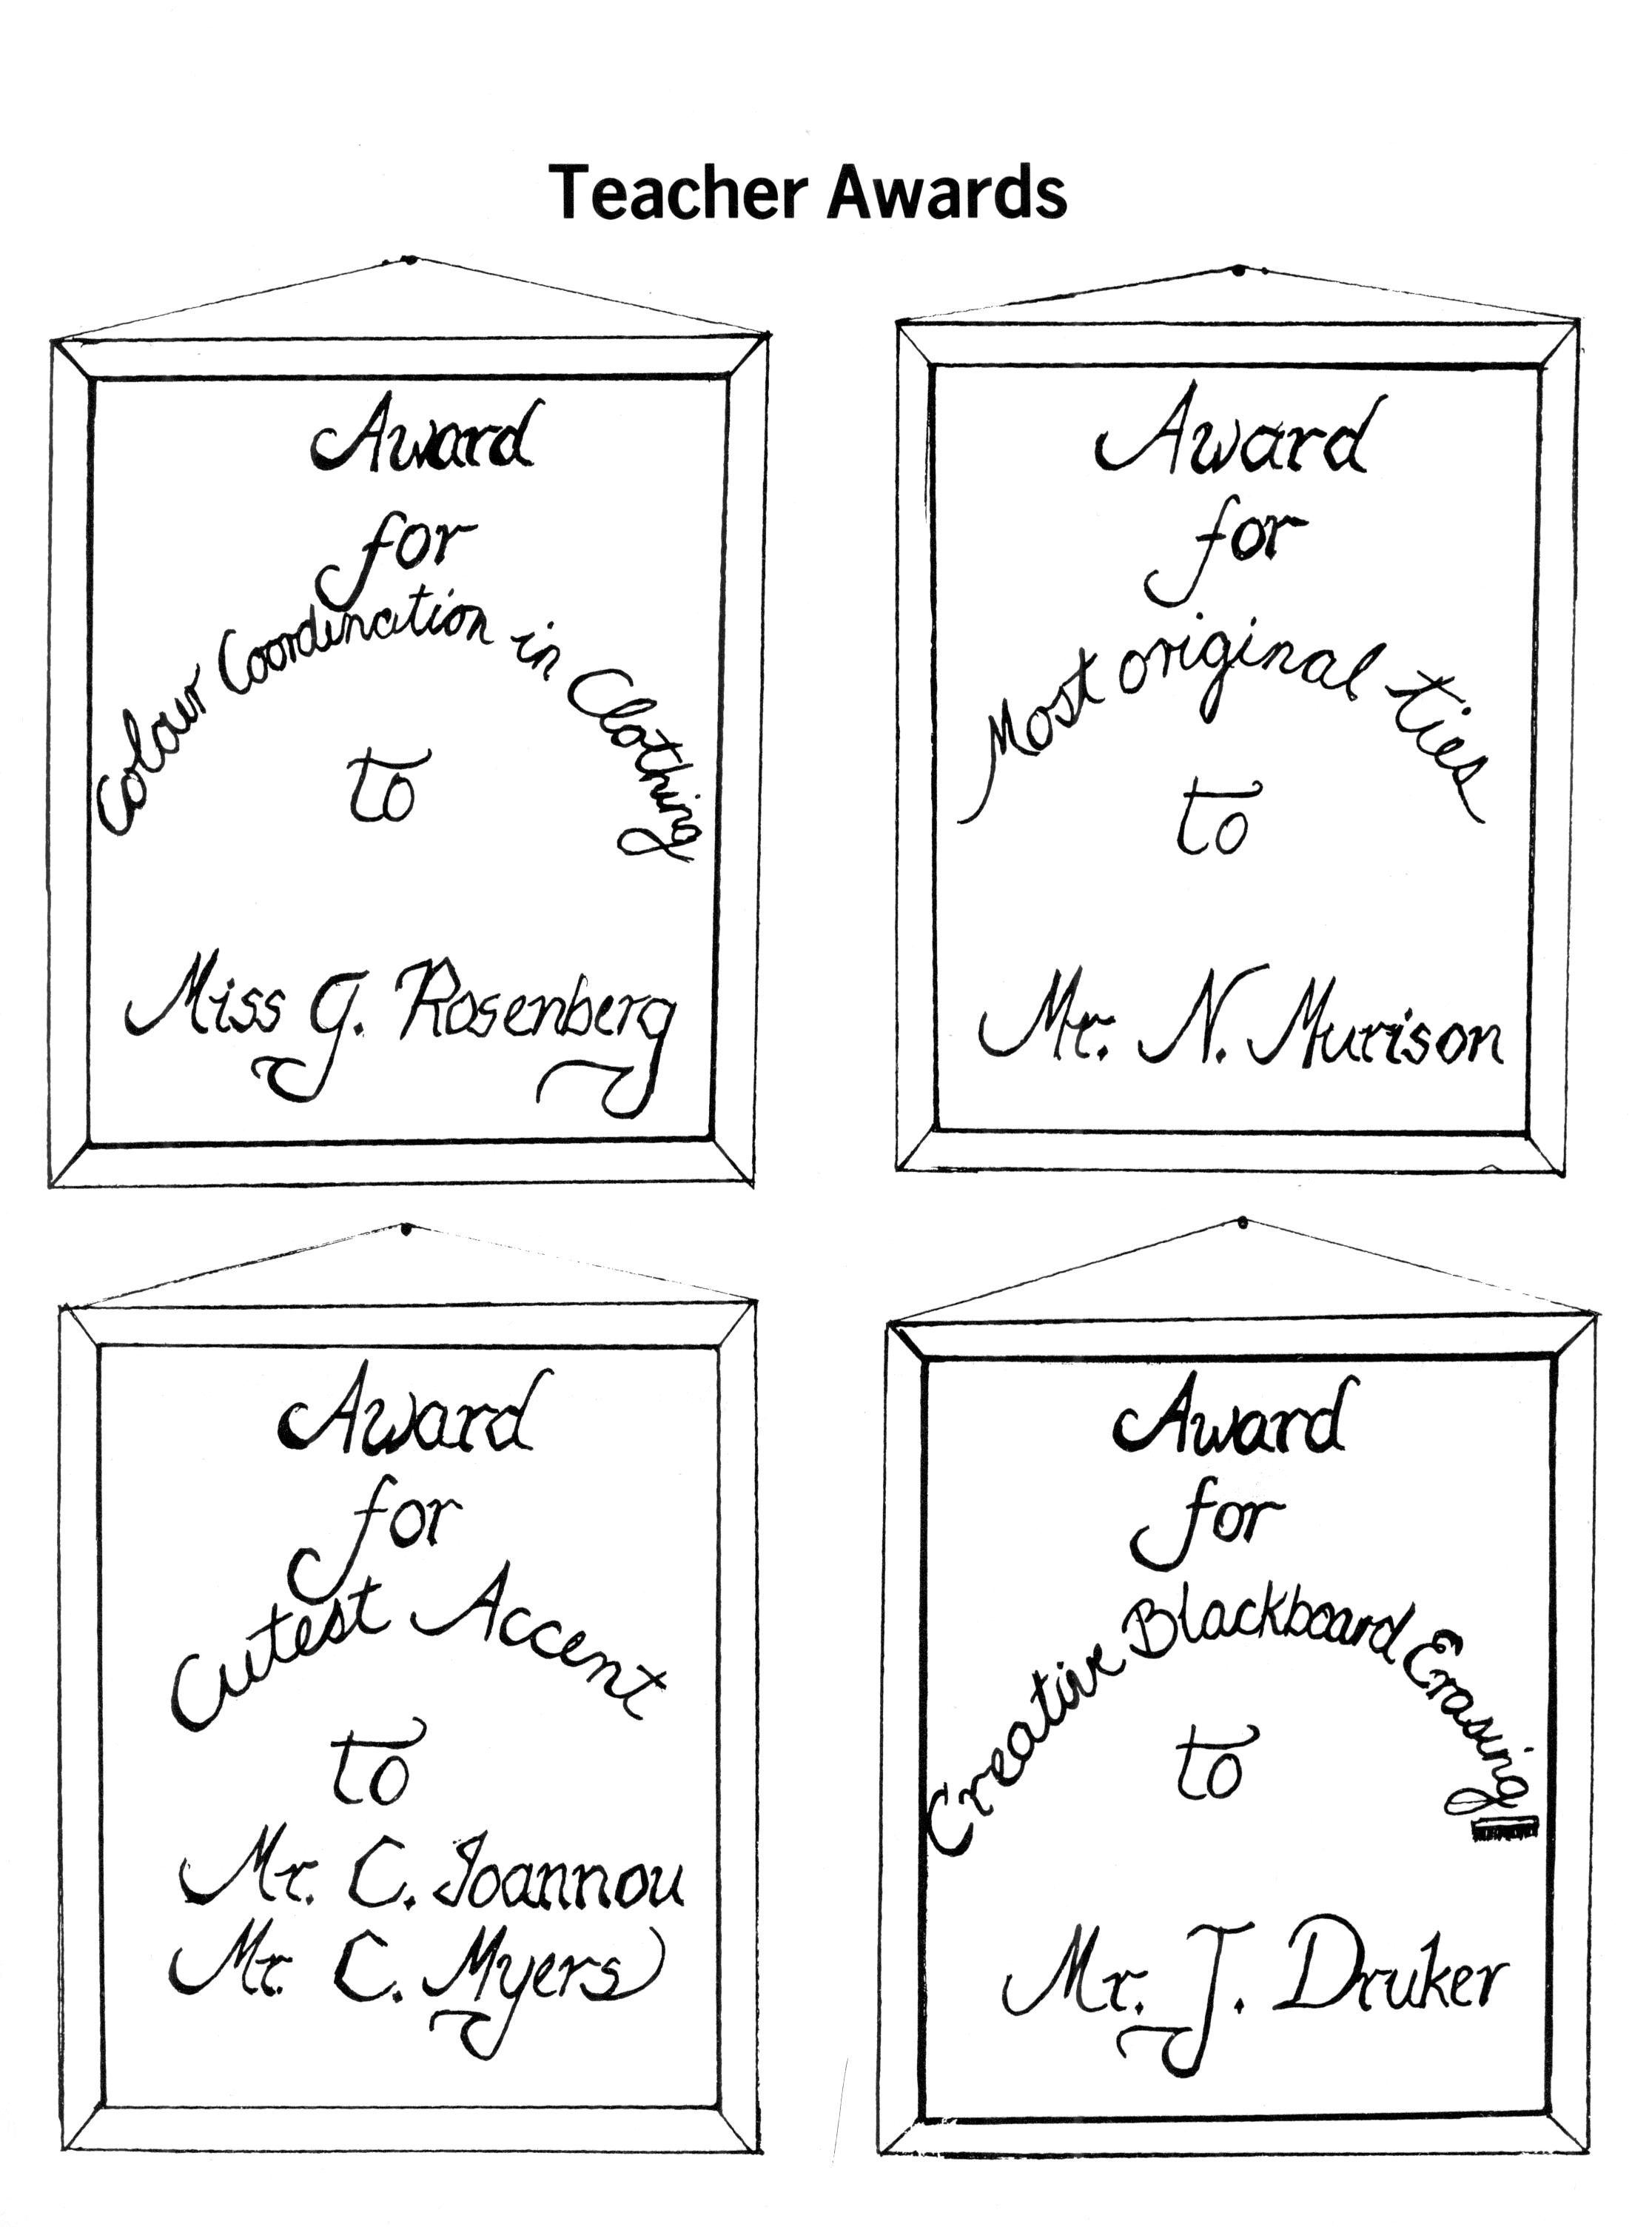 Teacher Awards
Award
for
Colour Coordination in Clothing
to
Miss G. Rosenberg
Award
for
Most original ties
to
Mr. N. Murison
Award
for
Cutest Accent
to
Mr. C. Ioannou
Mr. C. Myers
Award
for
Creative Blackboard Erasing
to
Mr. J. Druker